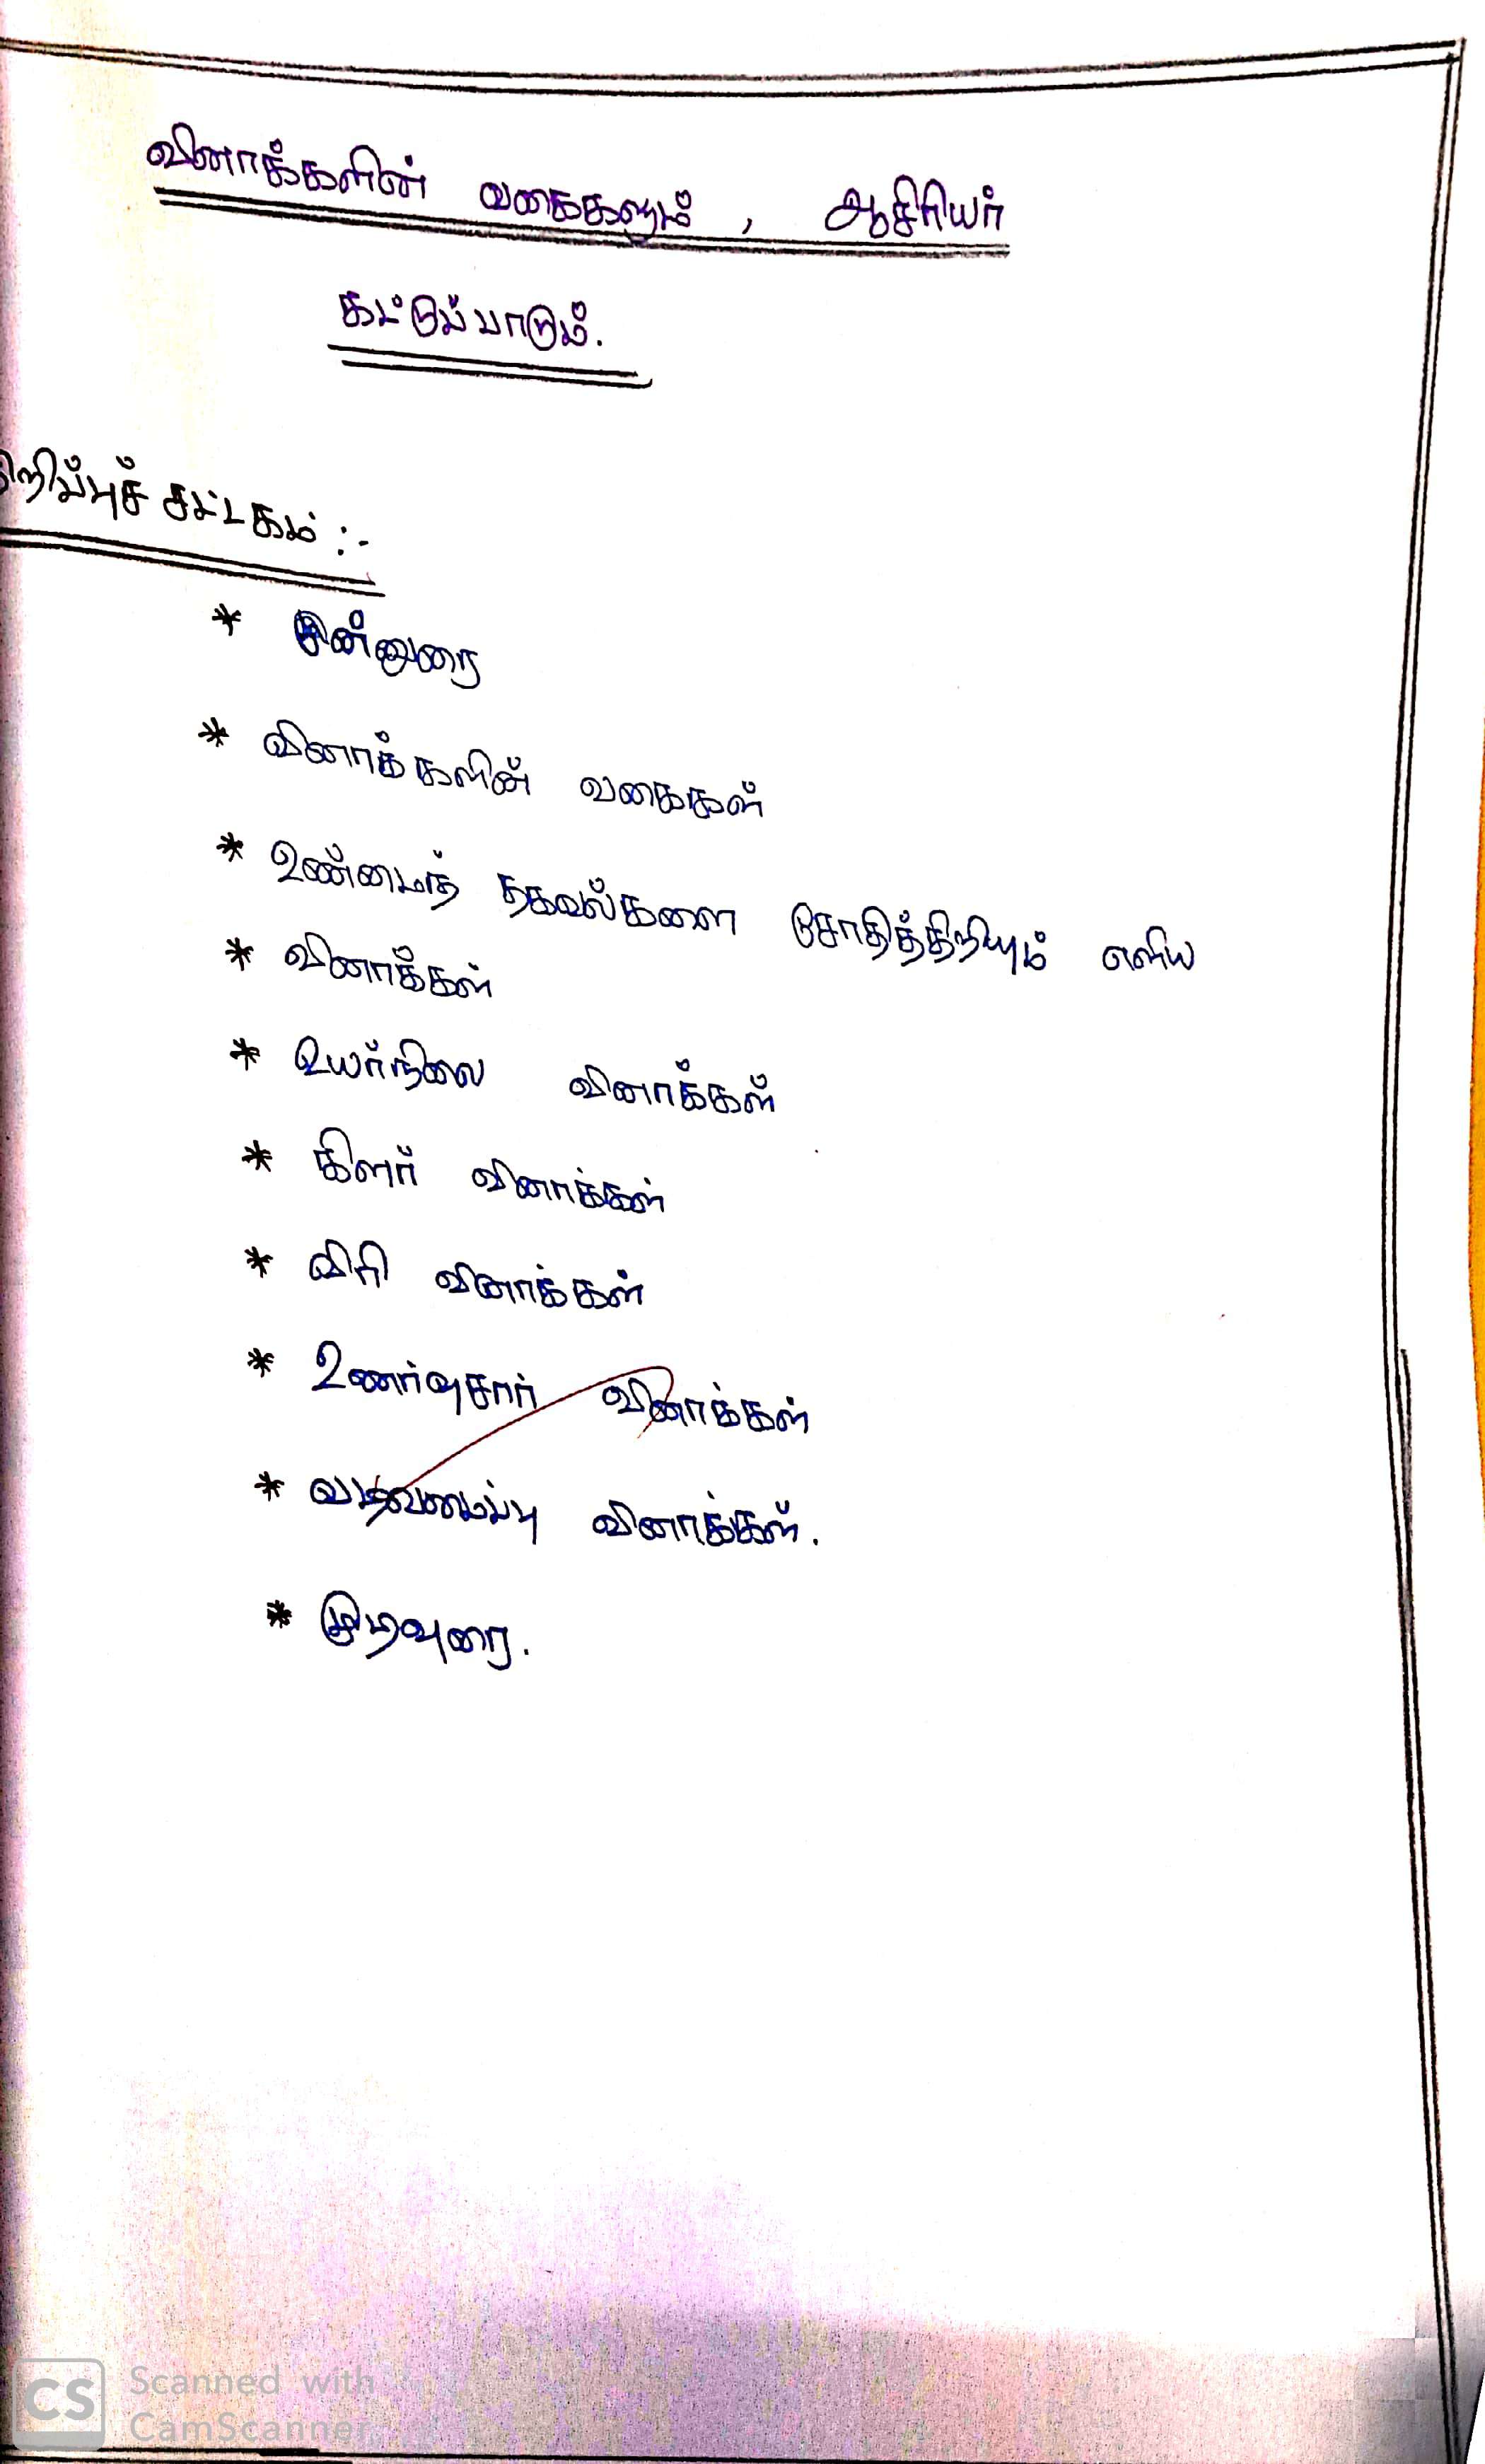 வினாக்களின் வகைகளும் , ஆசிரியர்
கட்டுப்பாடும்.
றிப்புச் சட்டகம் :-
* முன்னுரை
* வினாக்களின் வகைகள்
* உண்மைத் தகவல்களை சோதித்திறியும் எளிய
* வினாக்கள்
* உயர்நிலை வினாக்கள்
* கிளர் வினாக்கள்
* விரி வினாக்கள்
* உணர்வுசார் வினாக்கள்
* வடிவமைப்பு வினாக்கள்.
* முடிவுரை.
CS Scanned with
CamScanner